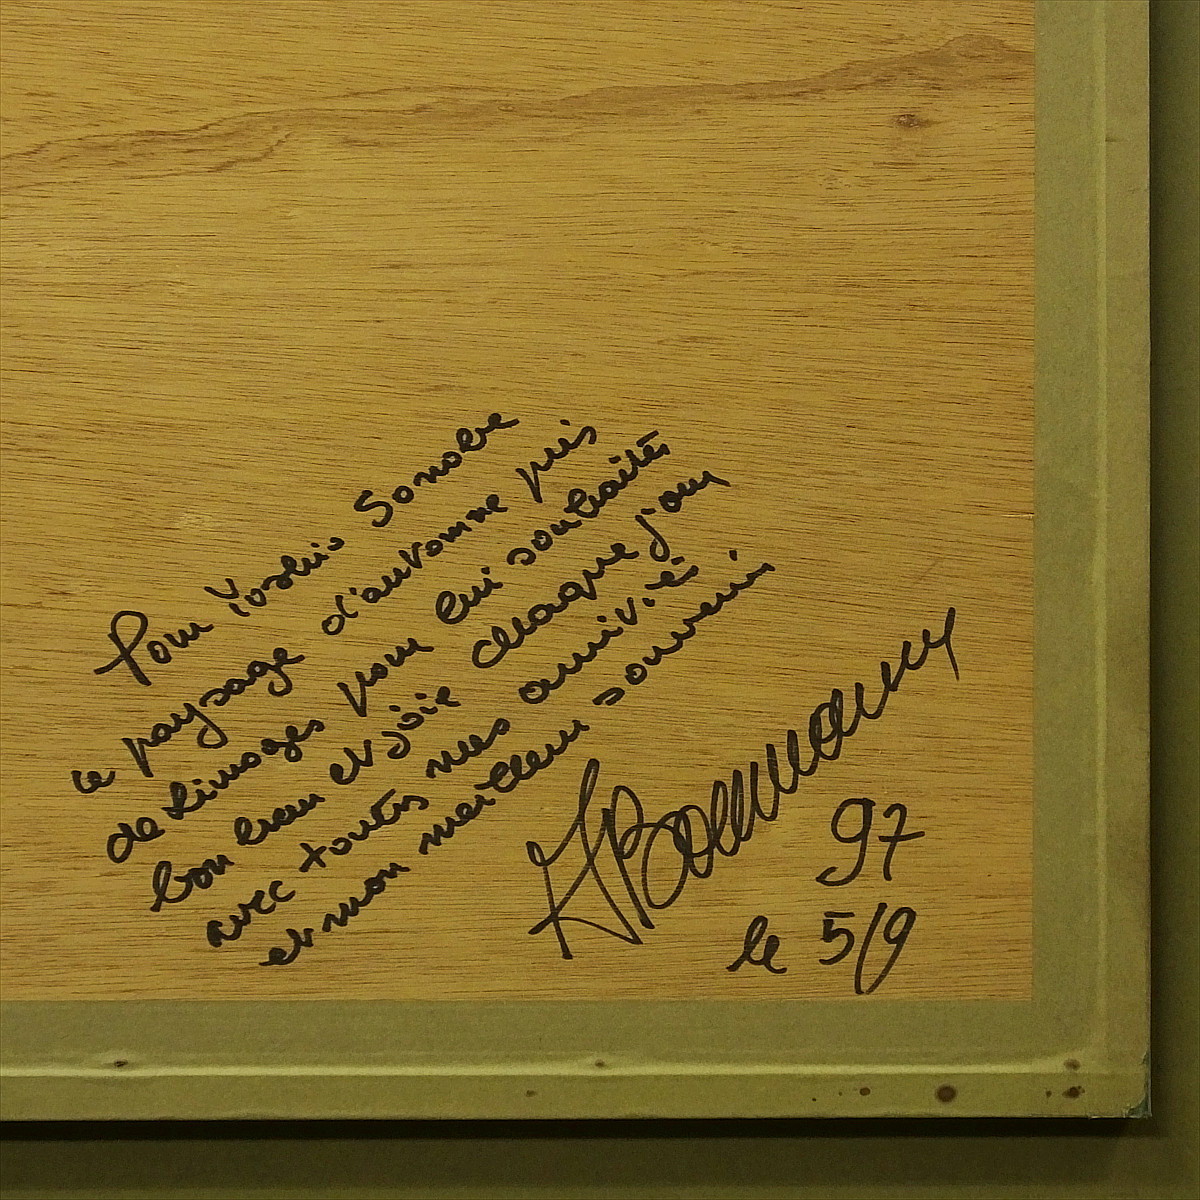 Pour Yoshio Sonobe
ce paysage d'automne près
de Limoges pour lui souhaiter
bonheur et joie chaque jour
avec toutes mes amitiés
et mon meilleur souvenir
97
le 5/9